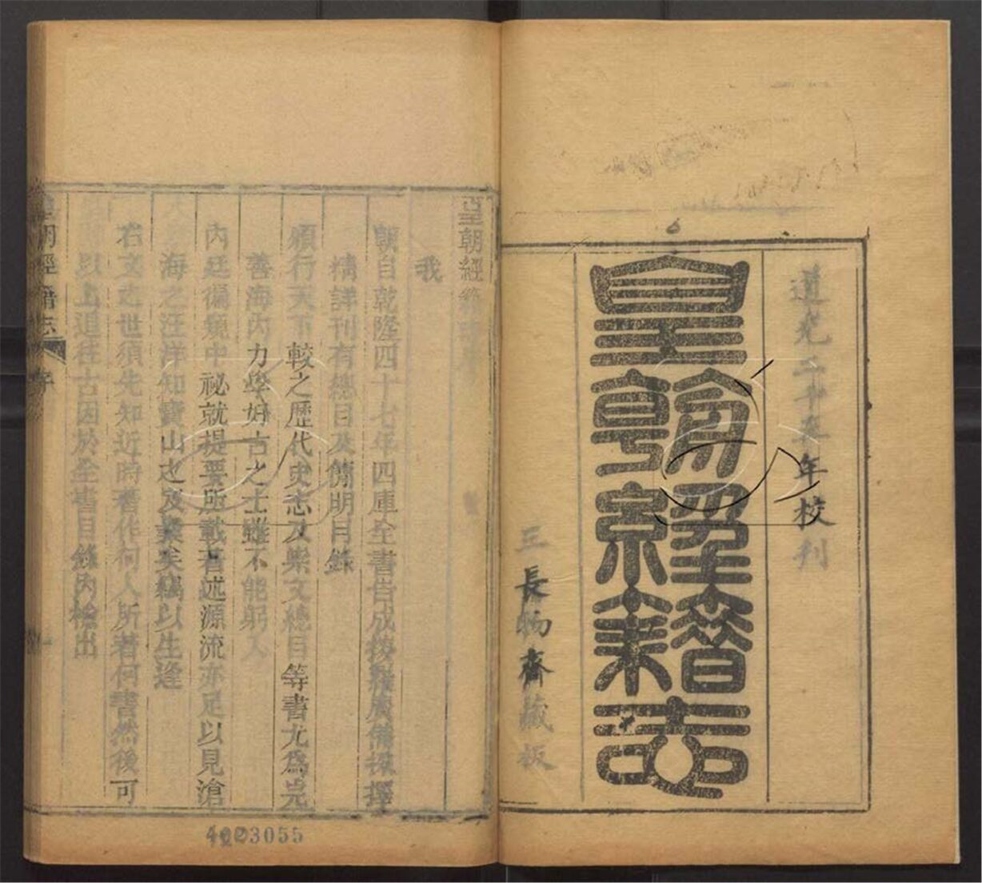 道光二十五年校刊
皇朝經籍志
三長物齋藏板
皇朝經籍志序
我
朝自乾隆四十七年四庫全書告成後
精詳刊有總目及簡明目錄
頒行天下較之歷代史志及崇文總目等書尤為
善海內力學好古之士雖不能躬入
內廷徧窺中祕就提要所載著述源流亦足以見滄
海之汪洋知寶山之及矣竊以生逢
右文之世須先知近時著作何人所著何書然後可
以上追往古因於全書目錄內檢出
皇朝經籍志 序
3055